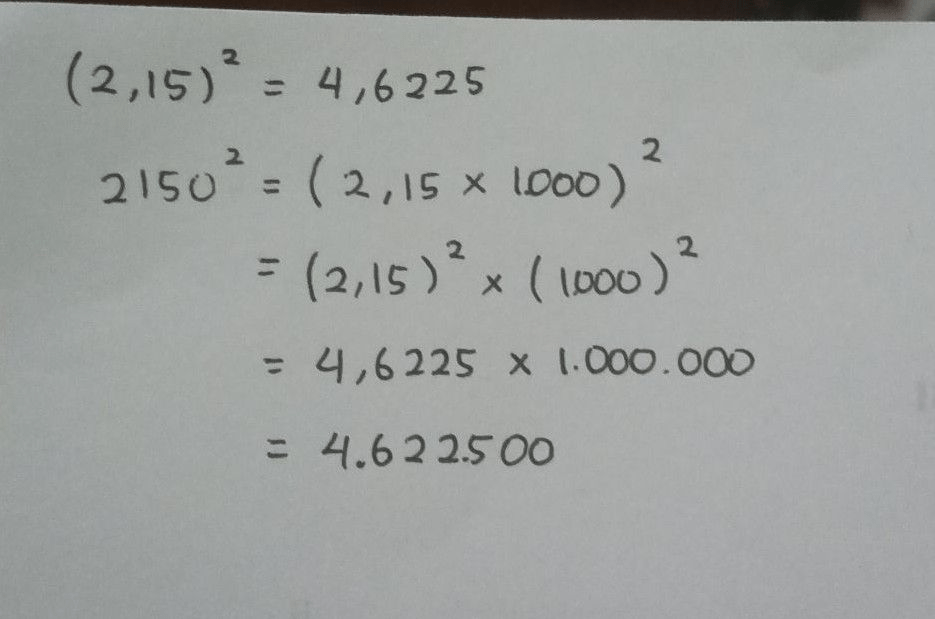 (2,15)² = 4,6225
2150² = (2,15 × 1.000)²
= (2,15)² × (1.000)²
= 4,6225 × 1.000.000
= 4.622.500